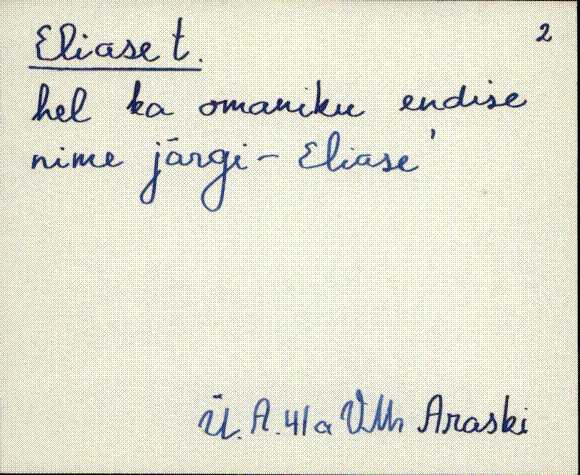 Eliase t. 2
hel ka omaniku endise
nime järgi - Eliase'
Ü. A. 41a VMh Araski